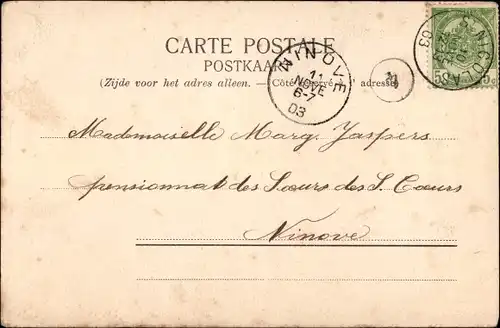 CARTE POSTALE
POSTKAART
(Zijde voor het adres alleen. — Côté réservé à l'adresse)
NINOVE
11
NOVE
6-7
03
S. NICOLAS
03
5 5c
Mademoiselle Marg. Jaspers
pensionnat des Sœurs des S. Cœurs
Ninove